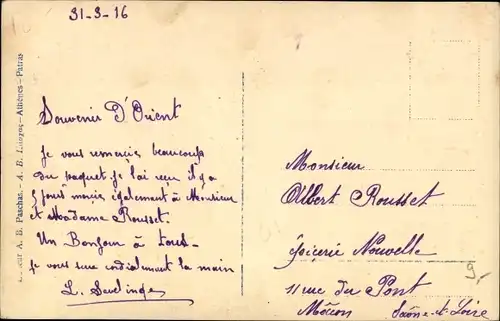 31-3-16
Souvenir D'Orient
je vous remercie beaucoup
du paquet je l'ai reçu il y a
5 jours mercie également à Monsieur
et Madame Rousset.
Un Bonjour à tous-
je vous serre cordialement la main
L.
Monsieur
Albert Rousset
épicerie Nouvelle
11 rue du Pont
Mâcon Saône-et-Loire
A. B. Paschas.- A. B. -Athènes-Patras
9-